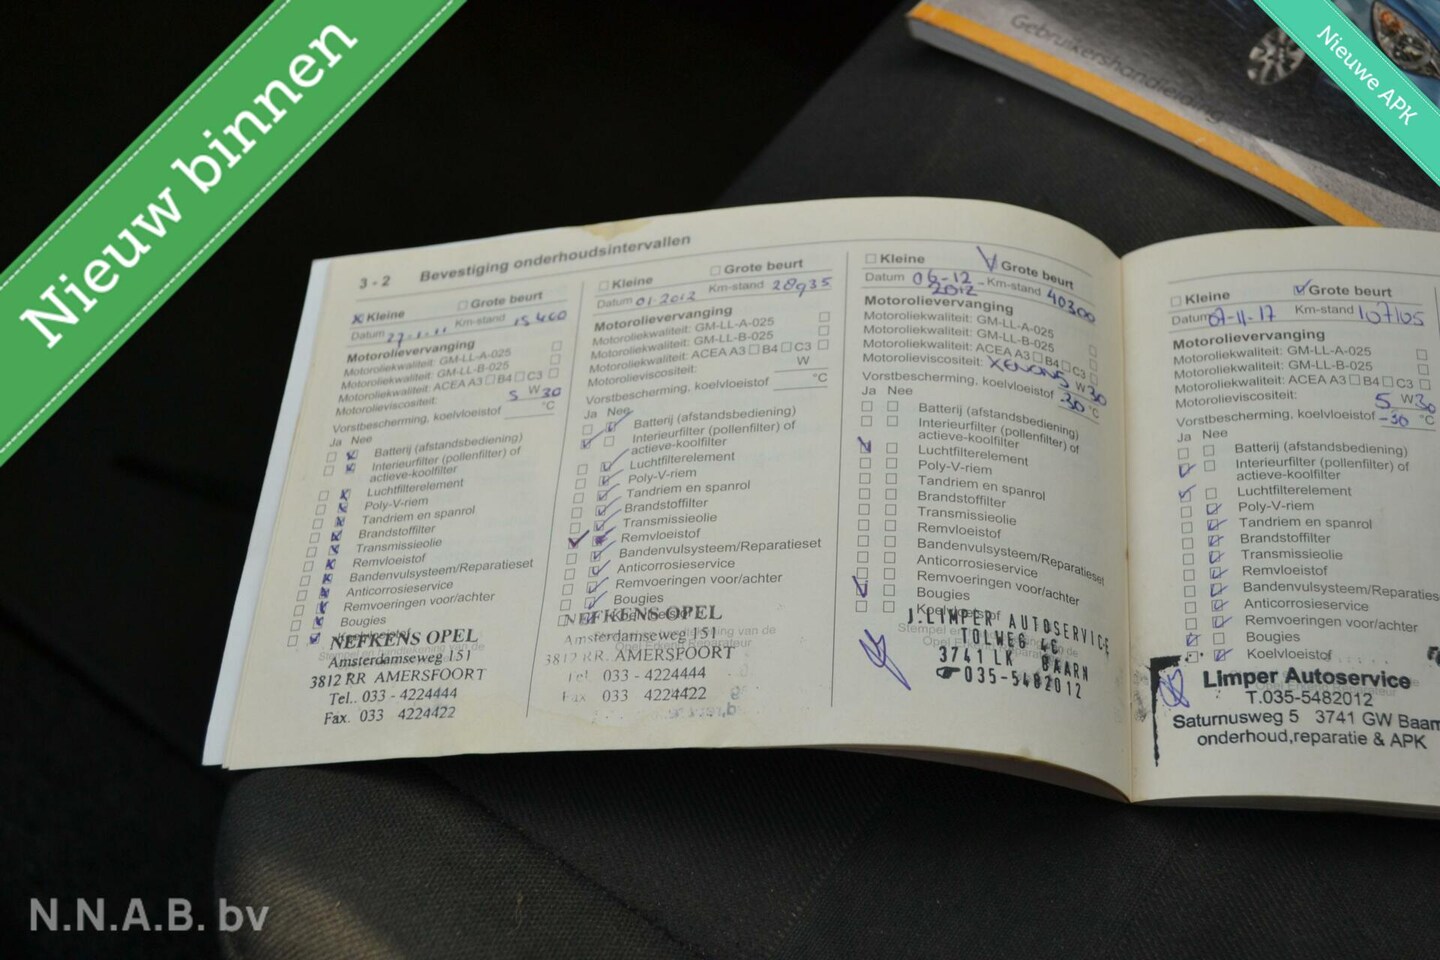 Nieuw binnen
Nieuwe APK
Gebruikershandleiding
3 - 2 Bevestiging onderhoudsintervallen
Kleine Grote beurt
Datum 27-1-11 Km-stand 15460
Motorolievervanging
Motoroliekwaliteit: GM-LL-A-025
Motoroliekwaliteit: GM-LL-B-025
Motoroliekwaliteit: ACEA A3 B4 C3
Motorolieviscositeit: 5 W 30
Vorstbescherming, koelvloeistof °C
Ja Nee
Batterij (afstandsbediening)
Interieurfilter (pollenfilter) of
actieve-koolfilter
Luchtfilterelement
Poly-V-riem
Tandriem en spanrol
Brandstoffilter
Transmissieolie
Remvloeistof
Bandenvulsysteem/Reparatieset
Anticorrosieservice
Remvoeringen voor/achter
Bougies
Koelvloeistof
NEFKENS OPEL
Stempel en handtekening van de
Amsterdamseweg 151
3812 RR AMERSFOORT
Tel.. 033 - 4224444
Fax. 033 4224422
Kleine Grote beurt
Datum 01-2012 Km-stand 28935
Motorolievervanging
Motoroliekwaliteit: GM-LL-A-025
Motoroliekwaliteit: GM-LL-B-025
Motoroliekwaliteit: ACEA A3 B4 C3
Motorolieviscositeit: W
Vorstbescherming, koelvloeistof °C
Ja Nee
Batterij (afstandsbediening)
Interieurfilter (pollenfilter) of
actieve-koolfilter
Luchtfilterelement
Poly-V-riem
Tandriem en spanrol
Brandstoffilter
Transmissieolie
Remvloeistof
Bandenvulsysteem/Reparatieset
Anticorrosieservice
Remvoeringen voor/achter
Bougies
NEFKENS OPEL
Amsterdamseweg 151
3812 RR. AMERSFOORT
Tel. 033 - 4224444
Fax 033 4224422
Kleine Grote beurt
Datum 06-12-2012 Km-stand 40300
Motorolievervanging
Motoroliekwaliteit: GM-LL-A-025
Motoroliekwaliteit: GM-LL-B-025
Motoroliekwaliteit: ACEA A3 B4 C3
Motorolieviscositeit: W 30
Vorstbescherming, koelvloeistof -30 °C
Ja Nee
Batterij (afstandsbediening)
Interieurfilter (pollenfilter) of
actieve-koolfilter
Luchtfilterelement
Poly-V-riem
Tandriem en spanrol
Brandstoffilter
Transmissieolie
Remvloeistof
Bandenvulsysteem/Reparatieset
Anticorrosieservice
Remvoeringen voor/achter
Bougies
Koelvloeistof
J.LIMPER AUTOSERVICE
TOLWEG 4C
3741 LK BAARN
035-5482012
Kleine Grote beurt
Datum 07-11-17 Km-stand 107105
Motorolievervanging
Motoroliekwaliteit: GM-LL-A-025
Motoroliekwaliteit: GM-LL-B-025
Motoroliekwaliteit: ACEA A3 B4 C3
Motorolieviscositeit: 5 W 30
Vorstbescherming, koelvloeistof -30 °C
Ja Nee
Batterij (afstandsbediening)
Interieurfilter (pollenfilter) of
actieve-koolfilter
Luchtfilterelement
Poly-V-riem
Tandriem en spanrol
Brandstoffilter
Transmissieolie
Remvloeistof
Bandenvulsysteem/Reparatiese
Anticorrosieservice
Remvoeringen voor/achter
Bougies
Koelvloeistof
Limper Autoservice
T.035-5482012
Saturnusweg 5 3741 GW Baarn
onderhoud,reparatie & APK
N.N.A.B. bv